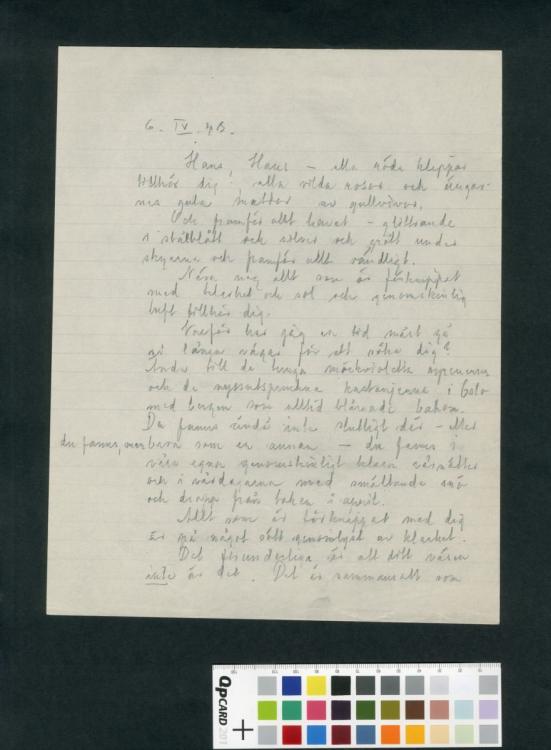 6. IV. 43.
Hans, Hans – alla röda klippor
tillhör dig, alla vilda rosor och ängar-
nas gula mattor av gullvivor.
Och framför allt havet – glittrande
i stålblått och silver och grått under
skyarna och framför allt oändligt.
Nära nog allt som är förknippat
med klarhet och sol och genomskinlig
luft tillhör dig.
Varför har jag en tid måst gå
så långa vägar för att nå dig?
Ända till de tunga mörkvioletta syrenerna
och de nyssutsprungna kastanjerna i
med bergen som alltid blånande bakom.
Du fanns ändå inte slutligt där – eller
du fanns, men bara som en annan – du fanns i
våra egna genomskinligt klara vårnätter
och i vårdagarna med smältande snö
och dropp från taken i april.
Allt som är förknippat med dig
är på något sätt genomlyst av klarhet.
Det förunderliga är att ditt väsen
inte är det. Det är sammansatt som